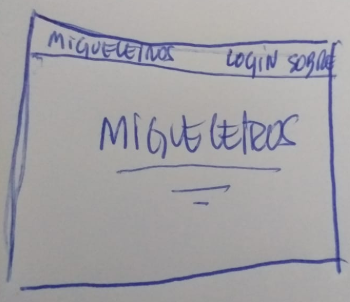 MIGUELEIROS LOGIN SOBRE
MIGUELEIROS